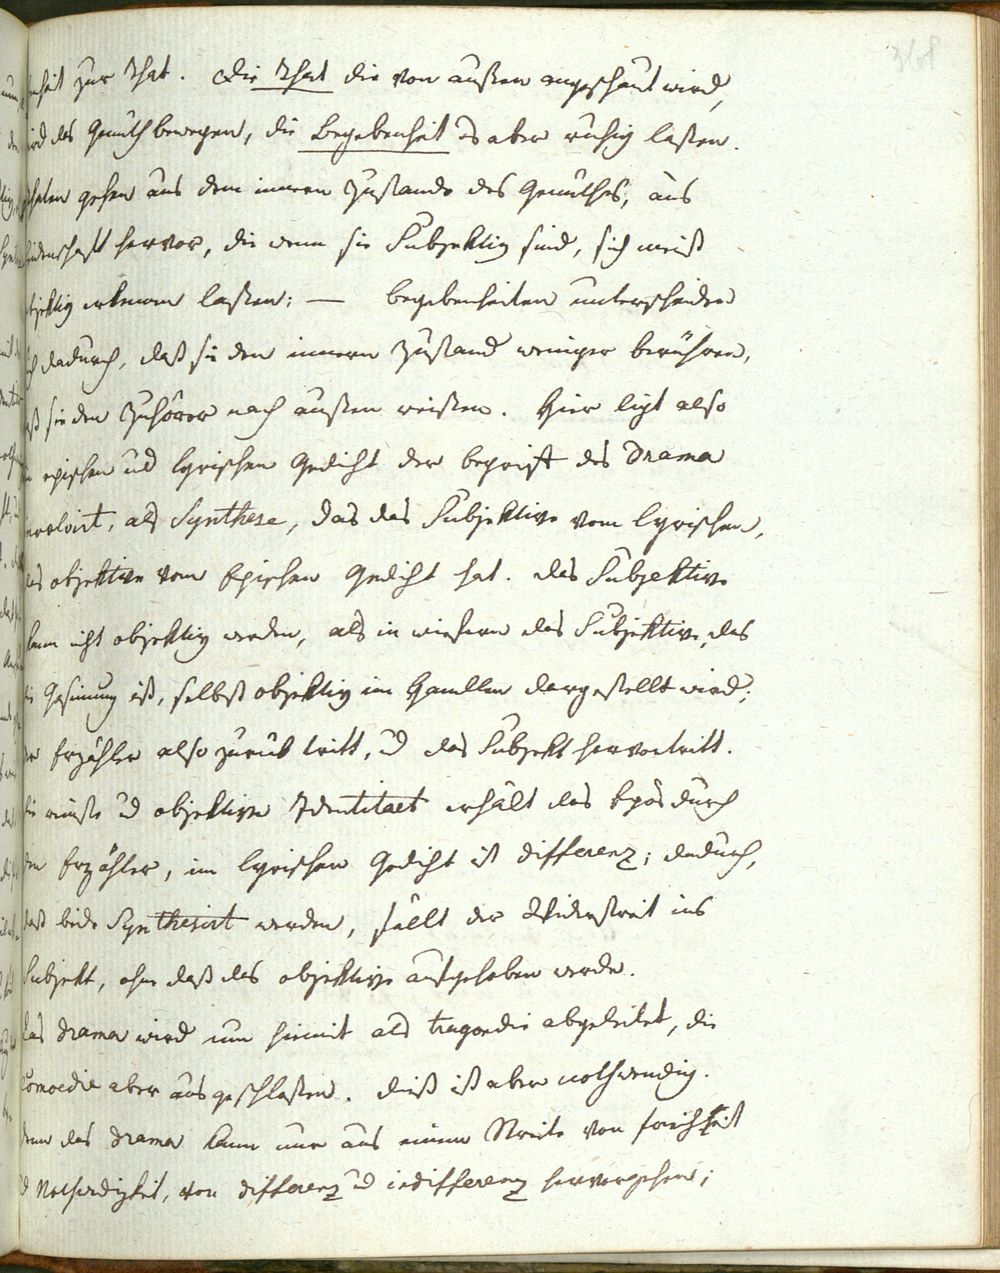 368
heit zur That. Die That die von außen angeschaut wird,
wird das Gemüth bewegen, die Begebenheit es aber ruhig laßen.
Thaten gehen aus dem innern Zustande des Gemüthes, aus
Leidenschaft hervor, die wenn sie Subjektiv sind, sich meist
objektiv erkennen laßen; — Begebenheiten unterscheiden
sich dadurch, daß sie den innern Zustand weniger berühren,
daß sie den Zuhörer nach außen weisen. Hier ligt also
im epischen und lyrischen Gedicht der Begriff des Drama
involvirt, als Synthese, das das Subjektive vom lyrischen,
das objektive vom Epischen Gedicht hat. Das Subjektive
kann nicht objektiv werden, als in wiefern das Subjektive, das
die Gesinnung ist, selbst objektiv im Handlen dargestellt wird;
der Erzähler also zurük tritt, und das Subjekt hervortritt.
die reinste und objektive Identitaet erhält das Epos durch
den Erzähler, im lyrischen Gedicht ist differenz; dadurch,
daß beide Synthesirt werden, fällt der Widerstreit ins
Subjekt, ohne daß das objektive aufgehoben werde.
Das Drama wird nun hiemit als tragoedie abgeleitet, die
Comoedie aber ausgeschlaßen. Dieß ist aber nothwendig.
denn das Drama kann nur aus einem Streite von Freiheit
und Nothwendigkeit, von differenz und indifferenz hervorgehen;